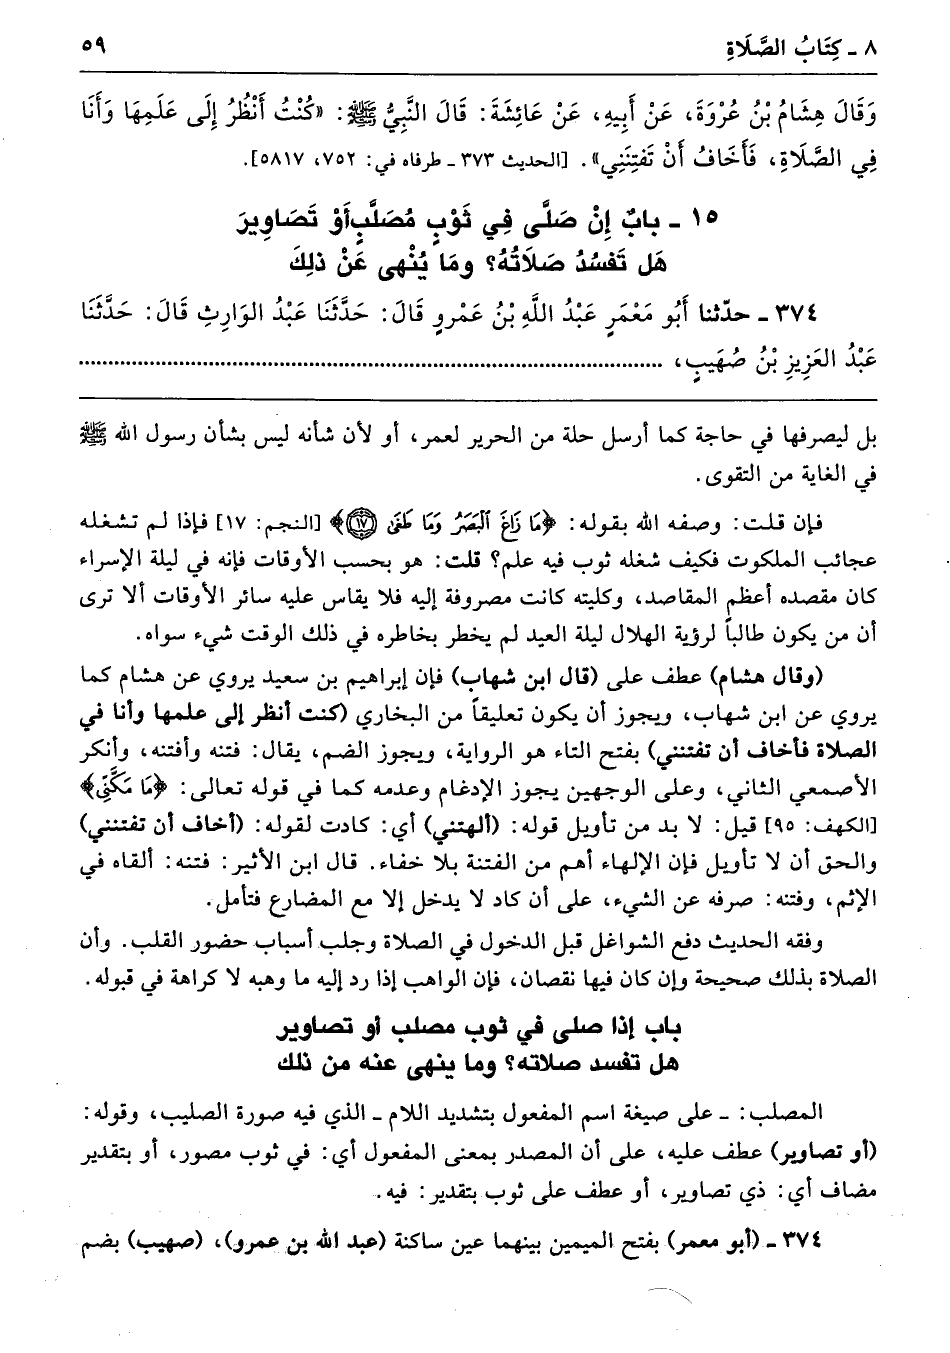 ٨ ـ كِتَابُ الصَّلَاةِ ٥٩
وَقَالَ هِشَامُ بْنُ عُرْوَةَ، عَنْ أَبِيهِ، عَنْ عَائِشَةَ: قَالَ النَّبِيُّ ﷺ: «كُنْتُ أَنْظُرُ إِلَى عَلَمِهَا وَأَنَا
فِي الصَّلَاةِ، فَأَخَافُ أَنْ تَفتِنَنِي». [الحديث ٣٧٣ ـ طرفاه في: ٧٥٢، ٥٨١٧].
١٥ ـ بابٌ إِنْ صَلَّى فِي ثَوْبٍ مُصَلَّبٍ أَوْ تَصَاوِيرَ
هَل تَفسُدُ صَلَاتُهُ؟ ومَا يُنْهى عَنْ ذلِكَ
٣٧٤ ـ حدّثنا أَبُو مَعْمَرٍ عَبْدُ اللَّهِ بْنُ عَمْرٍو قَالَ: حَدَّثَنَا عَبْدُ الوَارِثِ قَالَ: حَدَّثَنَا
عَبْدُ العَزِيزِ بْنُ صُهَيبٍ، ........................................................................
بل ليصرفها في حاجة كما أرسل حلة من الحرير لعمر، أو لأن شأنه ليس بشأن رسول الله ﷺ
في الغاية من التقوى.
فإن قلت: وصفه الله بقوله: ﴿مَا زَاغَ ٱلْبَصَرُ وَمَا طَغَىٰ ١٧﴾ [النجم: ١٧] فإذا لم تشغله
عجائب الملكوت فكيف شغله ثوب فيه علم؟ قلت: هو بحسب الأوقات فإنه في ليلة الإسراء
كان مقصده أعظم المقاصد، وكليته كانت مصروفة إليه فلا يقاس عليه سائر الأوقات ألا ترى
أن من يكون طالباً لرؤية الهلال ليلة العيد لم يخطر بخاطره في ذلك الوقت شيء سواه.
(وقال هشام) عطف على (قال ابن شهاب) فإن إبراهيم بن سعيد يروي عن هشام كما
يروي عن ابن شهاب، ويجوز أن يكون تعليقاً من البخاري (كنت أنظر إلى علمها وأنا في
الصلاة فأخاف أن تفتنني) بفتح التاء هو الرواية، ويجوز الضم، يقال: فتنه وأفتنه، وأنكر
الأصمعي الثاني، وعلى الوجهين يجوز الإدغام وعدمه كما في قوله تعالى: ﴿مَا مَكَّنِّي﴾
[الكهف: ٩٥] قيل: لا بد من تأويل قوله: (ألهتني) أي: كادت لقوله: (أخاف أن تفتنني)
والحق أن لا تأويل فإن الإلهاء أهم من الفتنة بلا خفاء. قال ابن الأثير: فتنه: ألقاه في
الإثم، وفتنه: صرفه عن الشيء، على أن كاد لا يدخل إلا مع المضارع فتأمل.
وفقه الحديث دفع الشواغل قبل الدخول في الصلاة وجلب أسباب حضور القلب. وأن
الصلاة بذلك صحيحة وإن كان فيها نقصان، فإن الواهب إذا رد إليه ما وهبه لا كراهة في قبوله.
باب إذا صلى في ثوب مصلب أو تصاوير
هل تفسد صلاته؟ وما ينهى عنه من ذلك
المصلب: ـ على صيغة اسم المفعول بتشديد اللام ـ الذي فيه صورة الصليب، وقوله:
(أو تصاوير) عطف عليه، على أن المصدر بمعنى المفعول أي: في ثوب مصور، أو بتقدير
مضاف أي: ذي تصاوير، أو عطف على ثوب بتقدير: فيه.
٣٧٤ ـ (أبو معمر) بفتح الميمين بينهما عين ساكنة (عبد الله بن عمرو)، (صهيب) بضم